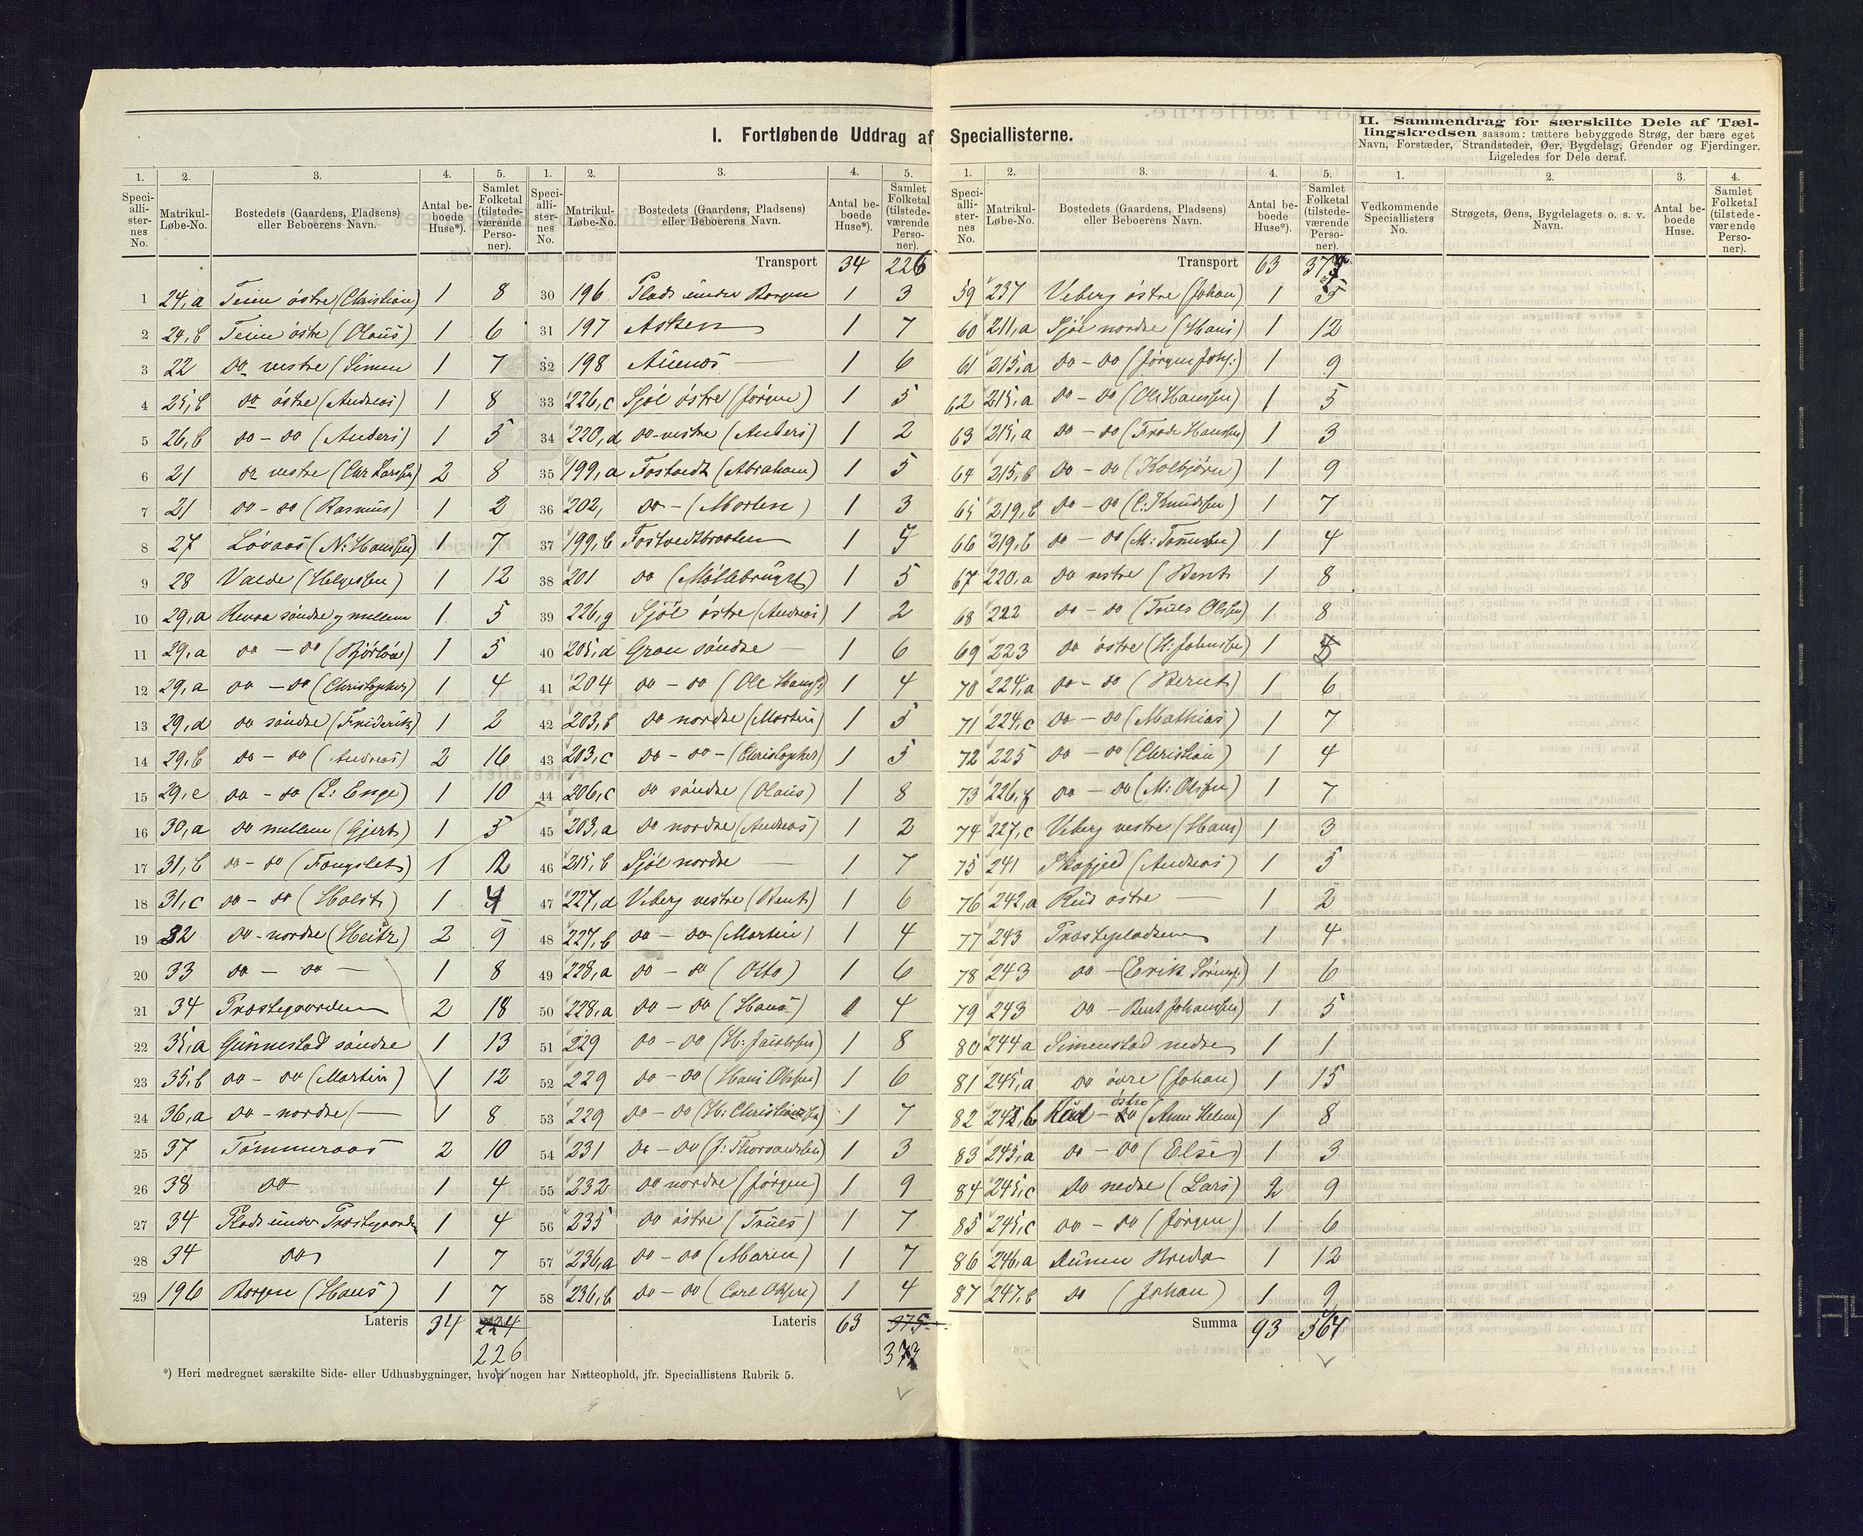 I. Fortløbende Uddrag af Speciallisterne.
II. Sammendrag for særskilte Dele af Tællingskredsen saasom: tættere bebyggede Strøg, der bære eget Navn, Forstæder, Strandsteder, Øer, Bygdelag, Grender og Fjerdinger. Ligeledes for Dele deraf.
1. 2. 3. 4. 5.
Speciallisternes No. Matrikul-Løbe-No. Bostedets (Gaardens, Pladsens) eller Beboerens Navn. Antal beboede Huse*). Samlet Folketal (tilstedeværende Personer).
1 24,a Teien østre (Christian) 1 8
2 24,b Teien østre (Olaus) 1 6
3 22 do vestre (Simen 1 7
4 25,b do østre (Andreas) 1 8
5 26,b do - do (Anders) 1 5
6 21 do vestre (Chr Larssen) 2 8
7 21 do - do (Rasmus) 1 2
8 27 Løvaas (N: Hanssen) 1 7
9 28 Valde (Helgessen) 1 12
10 29,a Revaa søndre og mellem 1 5
11 29,a do - do 1 5
12 29,a do - do (Christopher) 1 4
13 29,d do søndre (Friderik) 1 2
14 29,b do - do (Andreas) 2 16
15 29,e do - do (L: Enge) 1 10
16 30,a do mellem (Gjert) 1 5
17 31,b do - do 1 12
18 31,c do - do (Holst) 1 4
19 32 do - nordre 2 9
20 33 do - do - 1 8
21 34 Præstegaarden 2 18
22 35,a Gunnestad søndre 1 13
23 35,b do - do (Martin) 1 12
24 36,a do - nordre - 1 8
25 37 Tømmeraas 2 10
26 38 do 1 4
27 34 Plads under Præstegaarden 1 4
28 34 do 1 7
29 196 Borgen (Hans) 1 7
Lateris 34 224
226
Transport 34 226
30 196 Plads under Borgen 1 3
31 197 Asken 1 7
32 198 Auenæs 1 6
33 226,c Sjøl østre (Jørgen) 1 5
34 220,d do vestre (Anders) 1 2
35 199,a Fostvedt (Abraham) 1 5
36 202, do - (Morten) 1 3
37 199,b Fostvedtbraaten 1
38 201 do (Møllebruget) 1 5
39 226,g Sjøl østre (Andreas) 1 2
40 205,d Gran søndre - 1 6
41 204 do - do (Ole Hanss:) 1 4
42 203,b do nordre (Martin) 1 5
43 203,c do - do - (Christopher) 1 5
44 206,c do søndre (Olaus) 1 8
45 203,a do nordre (Andreas) 1 2
46 215,b Sjøl nordre - 1 7
47 227,d Viberg vestre (Bent) 1 6
48 227,b do - do (Martin) 1 4
49 228,a do - do (Otto) 1 6
50 228,a do - do (Hans) 1 4
51 229 do - do (H: Jacobsen) 1 8
52 229 do - do (Hans Olssen) 1 6
53 229 do - do (H: Christianssen) 1 7
54 231 do - do (J: Thorvaldsen) 1 3
55 232 do nordre (Jørgen) 1 9
56 235 do østre (Truls) 1 7
57 236,a do - do (Maren) 1 7
58 236,b do - do (Carl Olssen) 1 4
Lateris 63 375
373
Transport 63 373
59 237 Viberg østre (Johan) 1 5
60 211,a Sjøl nordre (Hans) 1 12
61 215,a do - do (Jørgen Johs:) 1 9
62 215,a do - do (Ole Hanssen) 1 5
63 215,a do - do (Frode Hanssen) 1 3
64 215,b do - do (Kolbjørn) 1 9
65 219,b do - do (C: Knudssen) 1 7
66 219,b do - do 1 4
67 220,a do vestre (Bent) 1 8
68 222 do - do (Truls Olssen) 1 8
69 223 do østre (H: Johnssen) 1 5
70 224,a do - do (Bernt) 1 6
71 224,c do - do (Mathias) 1 7
72 225 do - do (Christian) 1 4
73 226,f do - do (M: Olssen) 1 7
74 227,c Viberg vestre (Hans) 1 3
75 241 Skafjeld (Andreas) 1 5
76 242,a Rud østre - 1 2
77 243 Præstepladsen 1 4
78 243 do - (Erik Sørens:) 1 6
79 243 do - Bent Johanssen) 1 5
80 244a Simenstad nedre 1 1
81 245,a do øvre (Johan) 1 15
82 242,b Rud østre - do (Anne Helene) 1 8
83 245,a do - do (Else) 1 3
84 245,c do nedre (Lars) 2 9
85 245,c do - do (Jørgen) 1 6
86 246,a Aunen Breda 1 12
87 247,b do (Johan) 1 9
Summa 93 564
1. 2. 3. 4.
Vedkommende Speciallisters No. Strøgets, Øens, Bygdelagets o. s. v. Navn. Antal beboede Huse. Samlet Folketal (tilstedeværende Personer).
*) Heri medregnet særskilte Side- eller Udhusbygninger, hvori nogen har Natteophold, jfr. Speciallistens Rubrik 5.